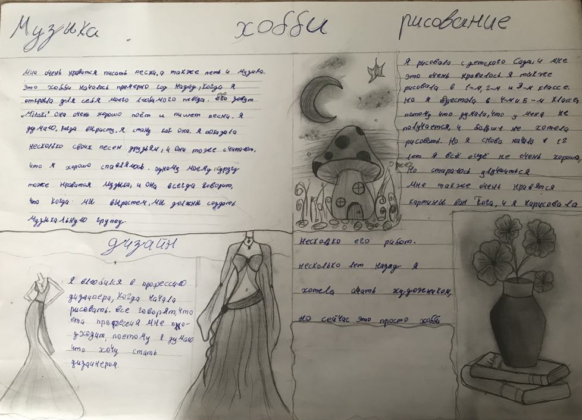 Музыка
хобби
рисование
Мне очень нравится писать песни, а также петь и музыка.
Это хобби началось примерно год назад, когда я
открыла для себя моего любимого певца. его зовут
"Mitski" она очень хорошо поёт и пишет песни. Я
думаю, когда вырасту, я стану как она. Я показала
несколько своих песен друзьям, и они тоже считают,
что я хорошо справляюсь. одному моему другу
тоже нравится музыка, и она всегда говорит,
что когда мы вырастем, мы должны создать
музыкальную группу.
Я рисовала с детского сада. и мне
это очень нравилось я также
рисовала в 1-м, 2-м и 3-м классе.
но я бросила в 4-м и 5-м классе,
потому что думала, что у меня не
получается и больше не хотела
рисовать. Но я снова начала в 6
хотя я всё ещё не очень хороша,
но стараюсь улучшится
Мне также очень нравятся
картины Ван Гога, и я нарисовала
несколько его работ.
несколько лет назад я
хотела стать художником,
но сейчас это просто хобби
дизайн
Я влюбилась в профессию
дизайнера, когда начала
рисовать. все говорят, что
эта профессия мне подходит,
поэтому я думаю
что хочу стать
дизайнером.